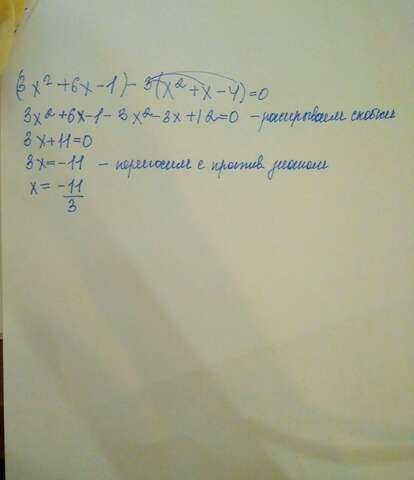 (3x²+6x-1)-3(x²+x-4)=0
3x²+6x-1-3x²-3x+12=0 - раскрываем скобки
3x+11=0
3x=-11 - переносим с против знаком
x= -11/3